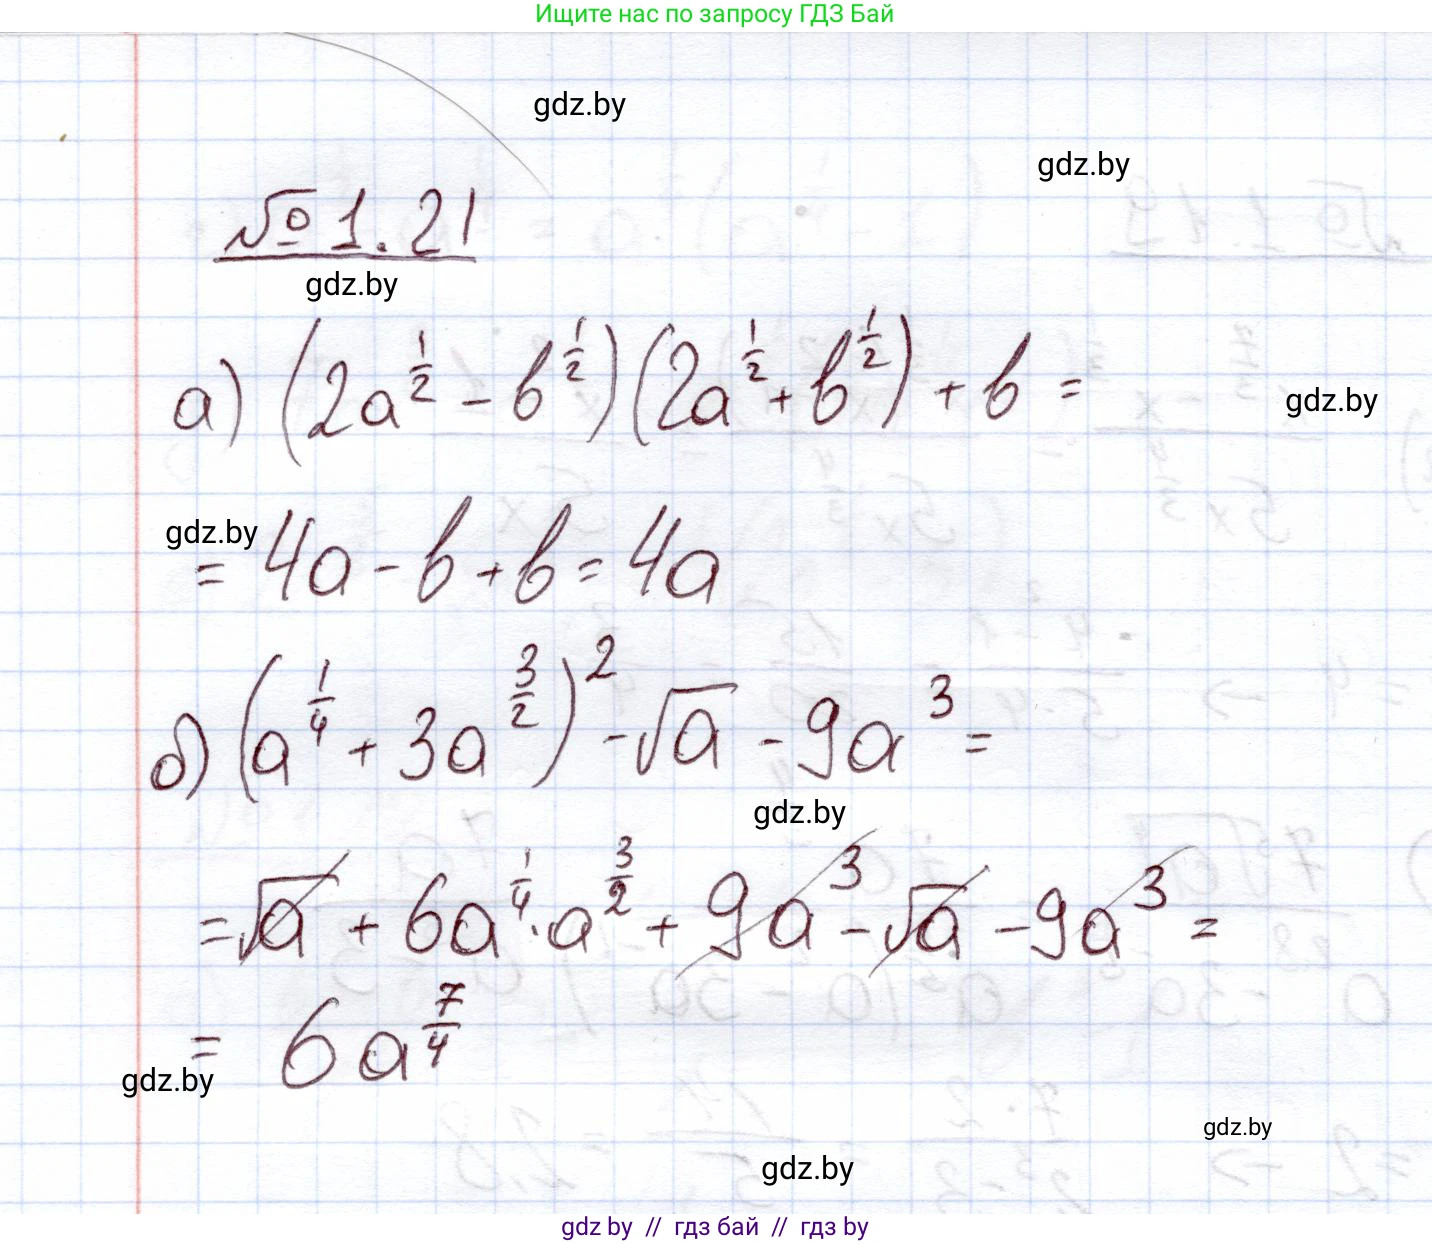 Ищите нас по запросу ГДЗ Бай
gdz.by
gdz.by
№ 1.21
gdz.by
а) (2a^{1/2} - b^{1/2})(2a^{1/2} + b^{1/2}) + b =
gdz.by
gdz.by
= 4a - b + b = 4a
б) (a^{1/4} + 3a^{3/2})^2 - √a - 9a^3 =
gdz.by
= √a + 6a^{1/4} · a^{3/2} + 9a^3 - √a - 9a^3 =
= 6a^{7/4}
gdz.by
gdz.by
gdz.by
gdz by // гдз бай // гдз by